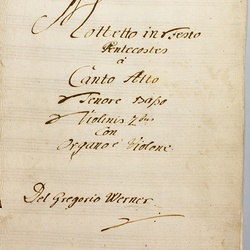 Mottetto in Festo
Pentecostes
à
Canto Alto
Tenore Basso
Violinis 2bus
Con
Organo è Violone
Del Gregorio Werner